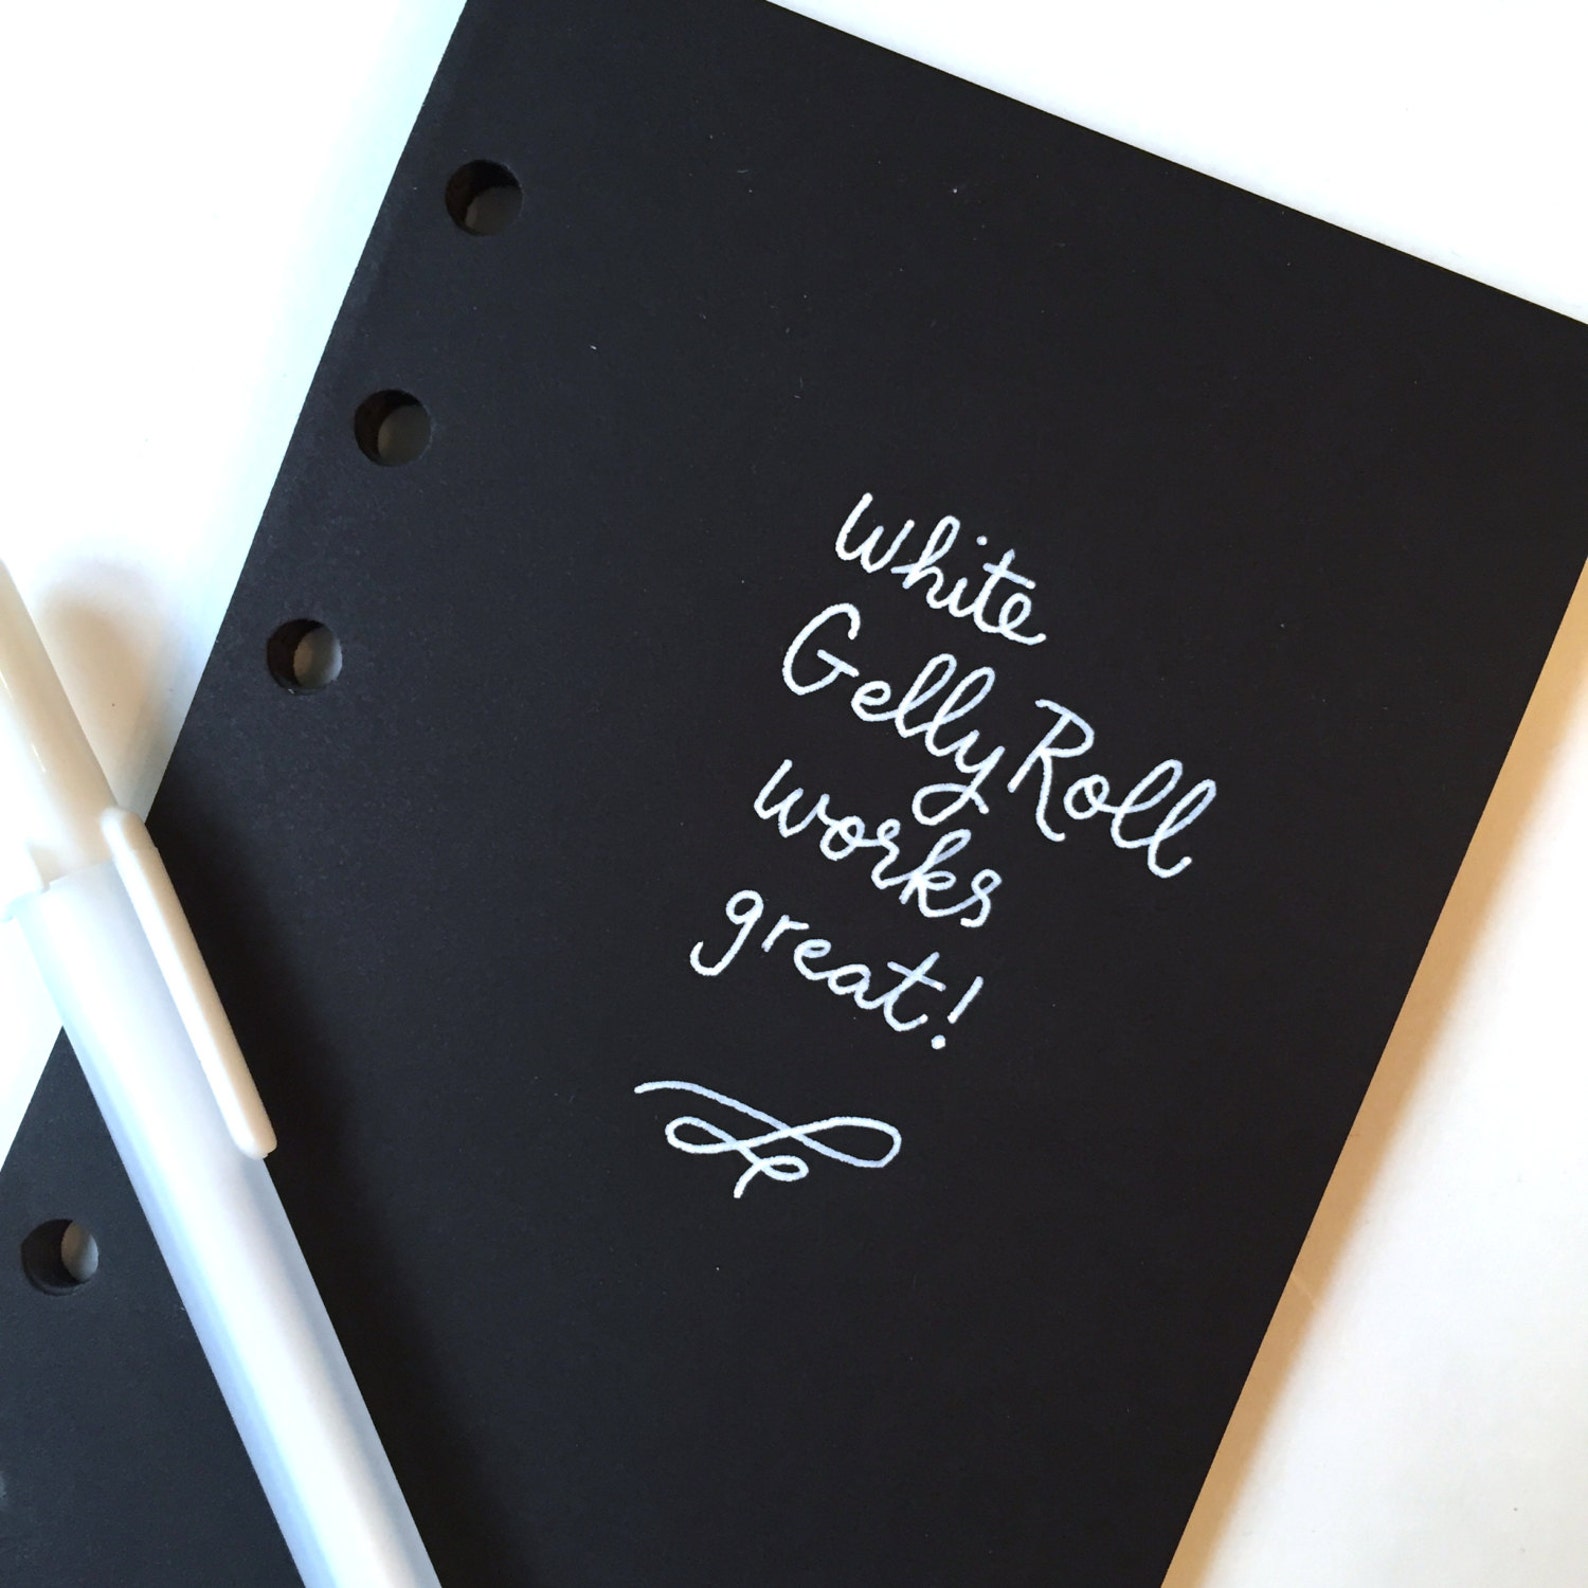 white
Gelly Roll
works
great!